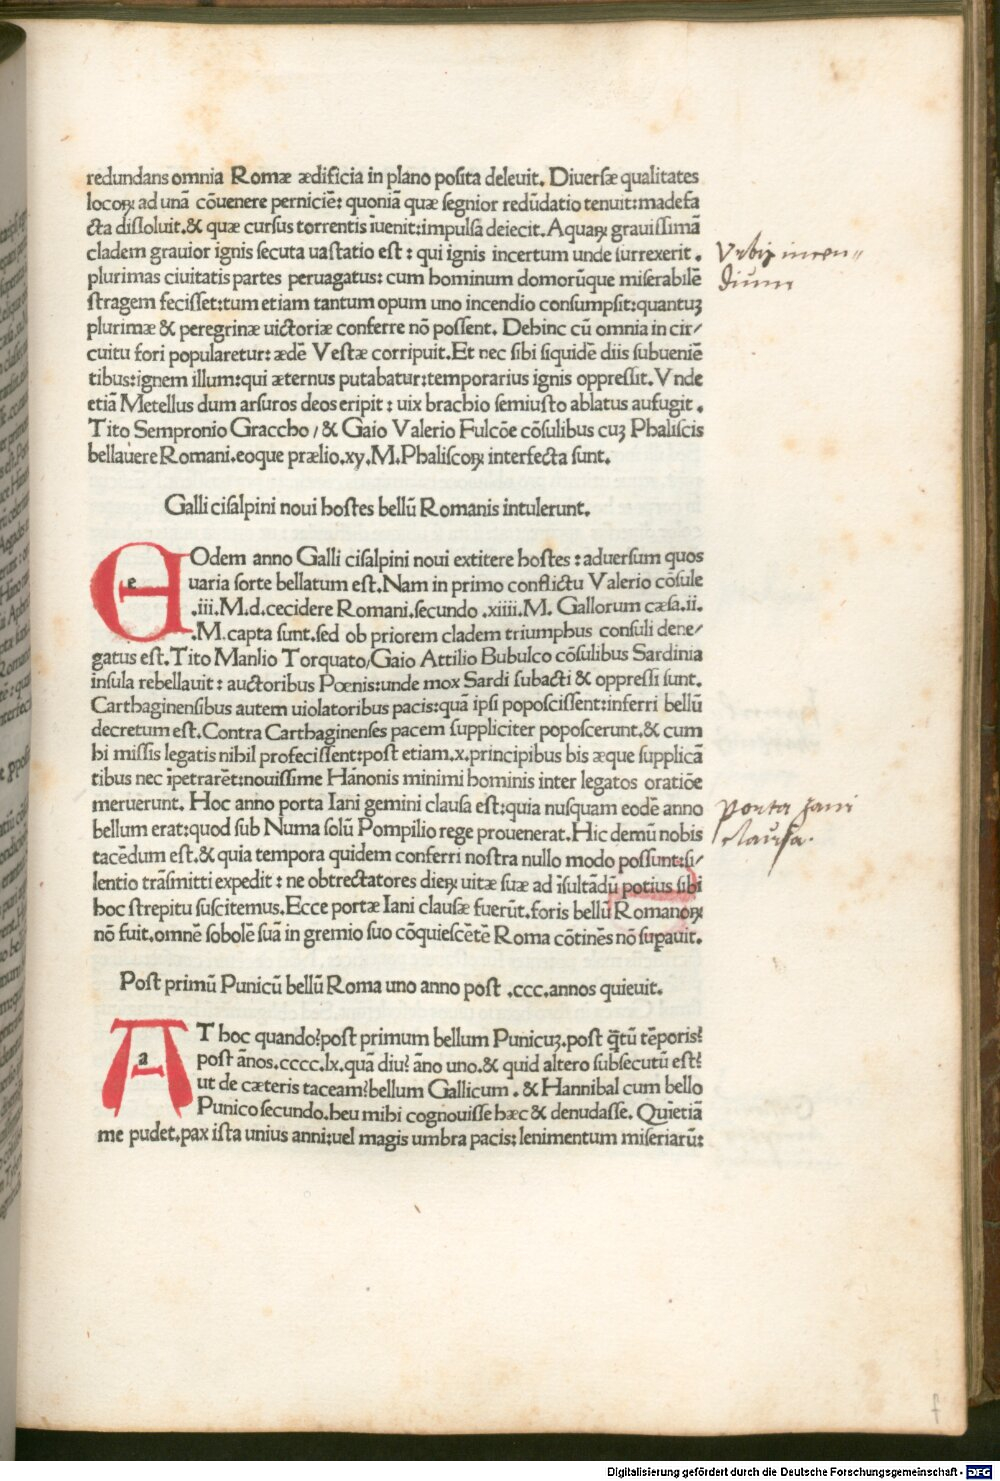 redundans omnia Romæ ædificia in plano posita deleuit. Diuersæ qualitates
locoꝝ ad unã cõuenere perniciẽ: quoniã quæ segnior redũdatio tenuit: madefa
cta dissoluit. & quæ cursus torrentis iuenit: impulsa deiecit. Aquaꝝ grauissimã
cladem grauior ignis secuta uastatio est: qui ignis incertum unde surrexerit.
plurimas ciuitatis partes peruagatus: cum hominum domorũque miserabilẽ
stragem fecisset: tum etiam tantum opum uno incendio consumpsit: quantuꝫ
plurimæ & peregrinæ uictoriæ conferre nõ possent. Debinc cũ omnia in cir/
cuitu fori popularetur: ædẽ Vestæ corripuit. Et nec sibi siquidẽ diis subueniẽ
tibus: ignem illum: qui æternus putabatur: temporarius ignis oppressit. Vnde
etiã Metellus dum arsuros deos eripit: uix brachio semiusto ablatus aufugit.
Tito Sempronio Graccho / & Gaio Valerio Fulcõe cõsulibus cuꝫ Phaliscis
bellauere Romani. eoque prælio. xy. M. Phaliscoꝝ interfecta sunt.
Galli cisalpini noui hostes bellũ Romanis intulerunt.
EOdem anno Galli cisalpini noui extitere hostes: aduersum quos
uaria sorte bellatum est. Nam in primo conflictu Valerio cõsule
.iii. M. d. cecidere Romani. secundo .xiiii. M. Gallorum cæsa. ii.
.M. capta sunt. sed ob priorem cladem triumphus consuli dene/
gatus est. Tito Manlio Torquato / Gaio Attilio Bubulco cõsulibus Sardinia
insula rebellauit: auctoribus Pœnis: unde mox Sardi subacti & oppressi sunt.
Carthaginensibus autem uiolatoribus pacis: quã ipsi poposcissent: inferri bellũ
decretum est. Contra Carthaginenses pacem suppliciter poposcerunt. & cum
hi missis legatis nihil profecissent: post etiam. x. principibus bis æque supplicã
tibus nec ĩpetrarẽt: nouissime Hãnonis minimi hominis inter legatos oratiõe
meruerunt. Hoc anno porta Iani gemini clausa est: quia nusquam eodẽ anno
bellum erat: quod sub Numa solũ Pompilio rege prouenerat. Hic demũ nobis
tacẽdum est. & quia tempora quidem conferri nostra nullo modo possunt: si/
lentio trãsmitti expedit: ne obtrectatores dieꝝ uitæ suæ ad ĩsultãdũ potius sibi
hoc strepitu suscitemus. Ecce portæ Iani clausæ fuerũt. foris bellũ Romanoꝝ
nõ fuit. omnẽ sobolẽ suã in gremio suo cõquiescẽtẽ Roma cõtinẽs nõ supauit.
Post primũ Punicũ bellũ Roma uno anno post .ccc. annos quieuit.
AT hoc quando? post primum bellum Punicuꝫ. post q̃tũ tẽporis?
post ãnos. cccc. lx. quã diu? ãno uno. & quid altero subsecutũ est?
ut de cæteris taceam? bellum Gallicum. & Hannibal cum bello
Punico secundo. heu mihi cognouisse hæc & denudasse. Quietiã
me pudet. pax ista unius anni: uel magis umbra pacis: lenimentum miseriarũ:
Vrbis incen〃
dium
porta Jani
clausa.
e
a
f
Digitalisierung gefördert durch die Deutsche Forschungsgemeinschaft - DFG